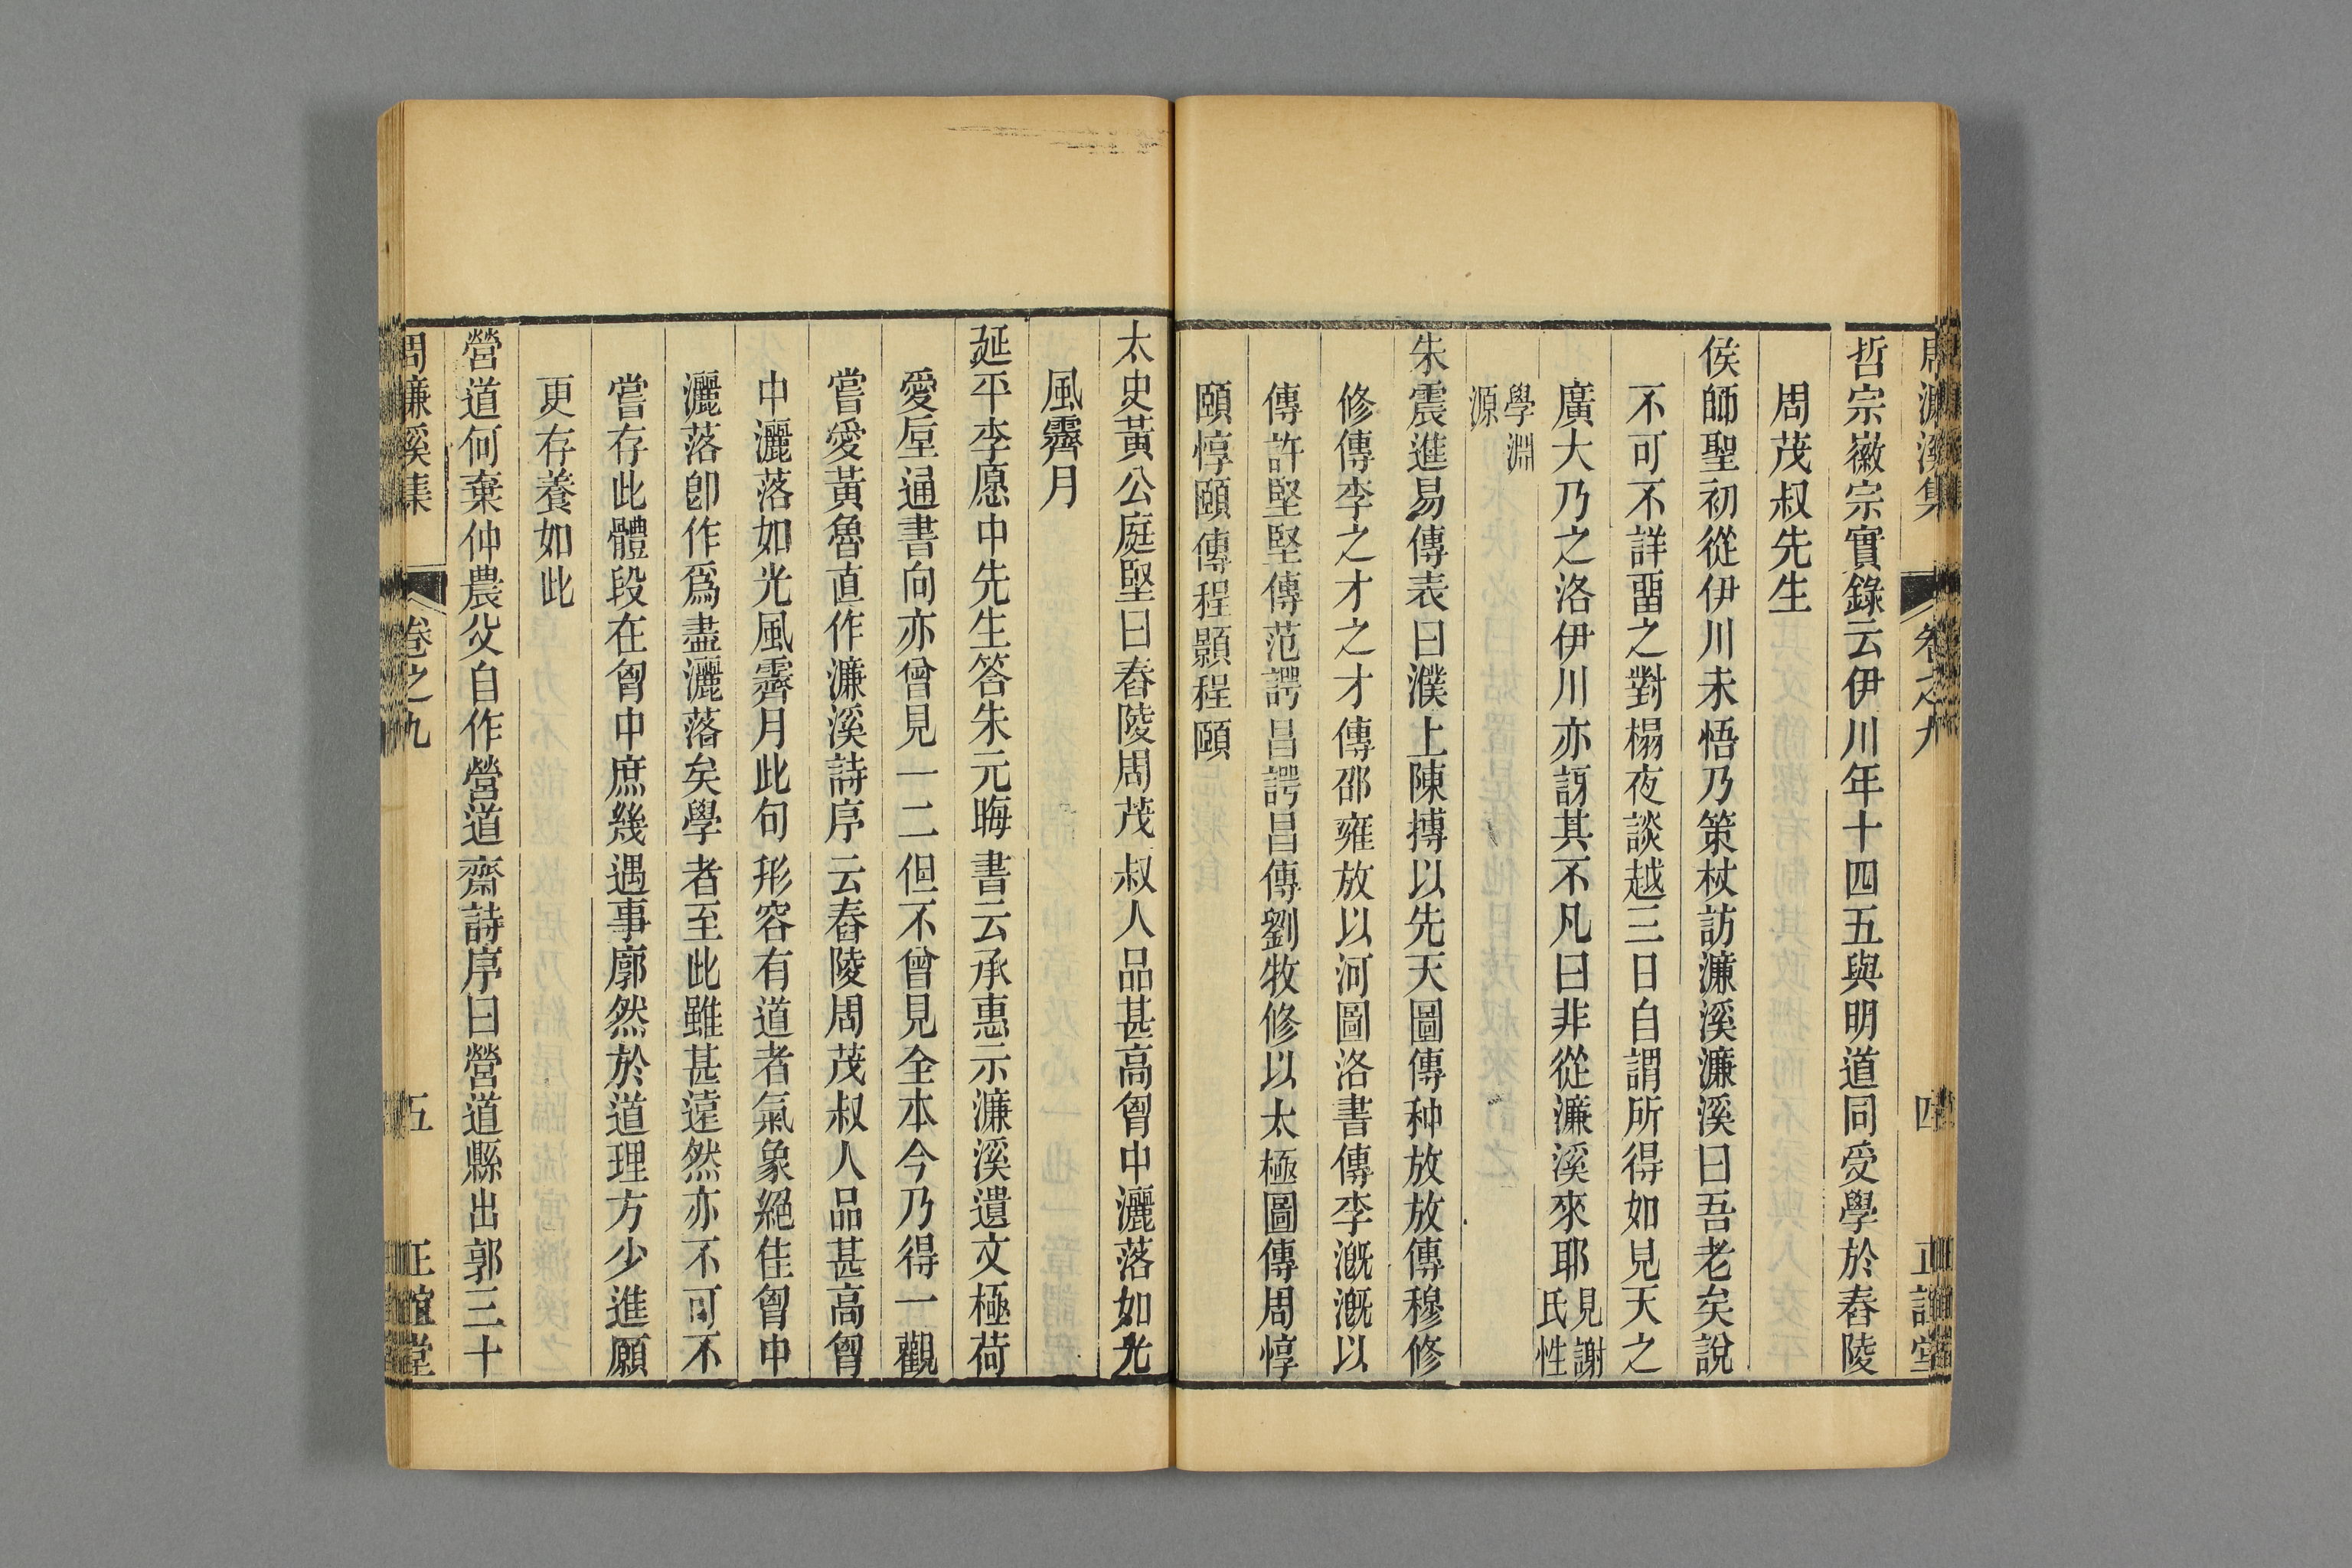 周濂溪集 卷之九 四 正誼堂
哲宗徽宗實錄云伊川年十四五與明道同受學於舂陵
周茂叔先生
侯師聖初從伊川未悟乃策杖訪濂溪濂溪曰吾老矣說
不可不詳畱之對榻夜談越三日自謂所得如見天之
廣大乃之洛伊川亦訝其不凡曰非從濂溪來耶見謝氏性
學淵源
朱震進易傳表曰濮上陳摶以先天圖傳种放放傳穆修
修傳李之才之才傳邵雍放以河圖洛書傳李漑漑以
傳許堅堅傳范諤昌諤昌傳劉牧修以太極圖傳周惇
頤惇頤傳程顥程頤
太史黃公庭堅曰舂陵周茂叔人品甚高胷中灑落如光
風霽月
延平李愿中先生答朱元晦書云承惠示濂溪遺文極荷
愛厚通書向亦曾見一二但不曾見全本今乃得一觀
嘗愛黃魯直作濂溪詩序云舂陵周茂叔人品甚高胷
中灑落如光風霽月此句形容有道者氣象絕佳胷中
灑落卽作爲盡灑落矣學者至此雖甚遠然亦不可不
嘗存此體段在胷中庶幾遇事廓然於道理方少進願
更存養如此
營道何棄仲農父自作營道齋詩序曰營道縣出郭三十
周濂溪集 卷之九 五 正誼堂